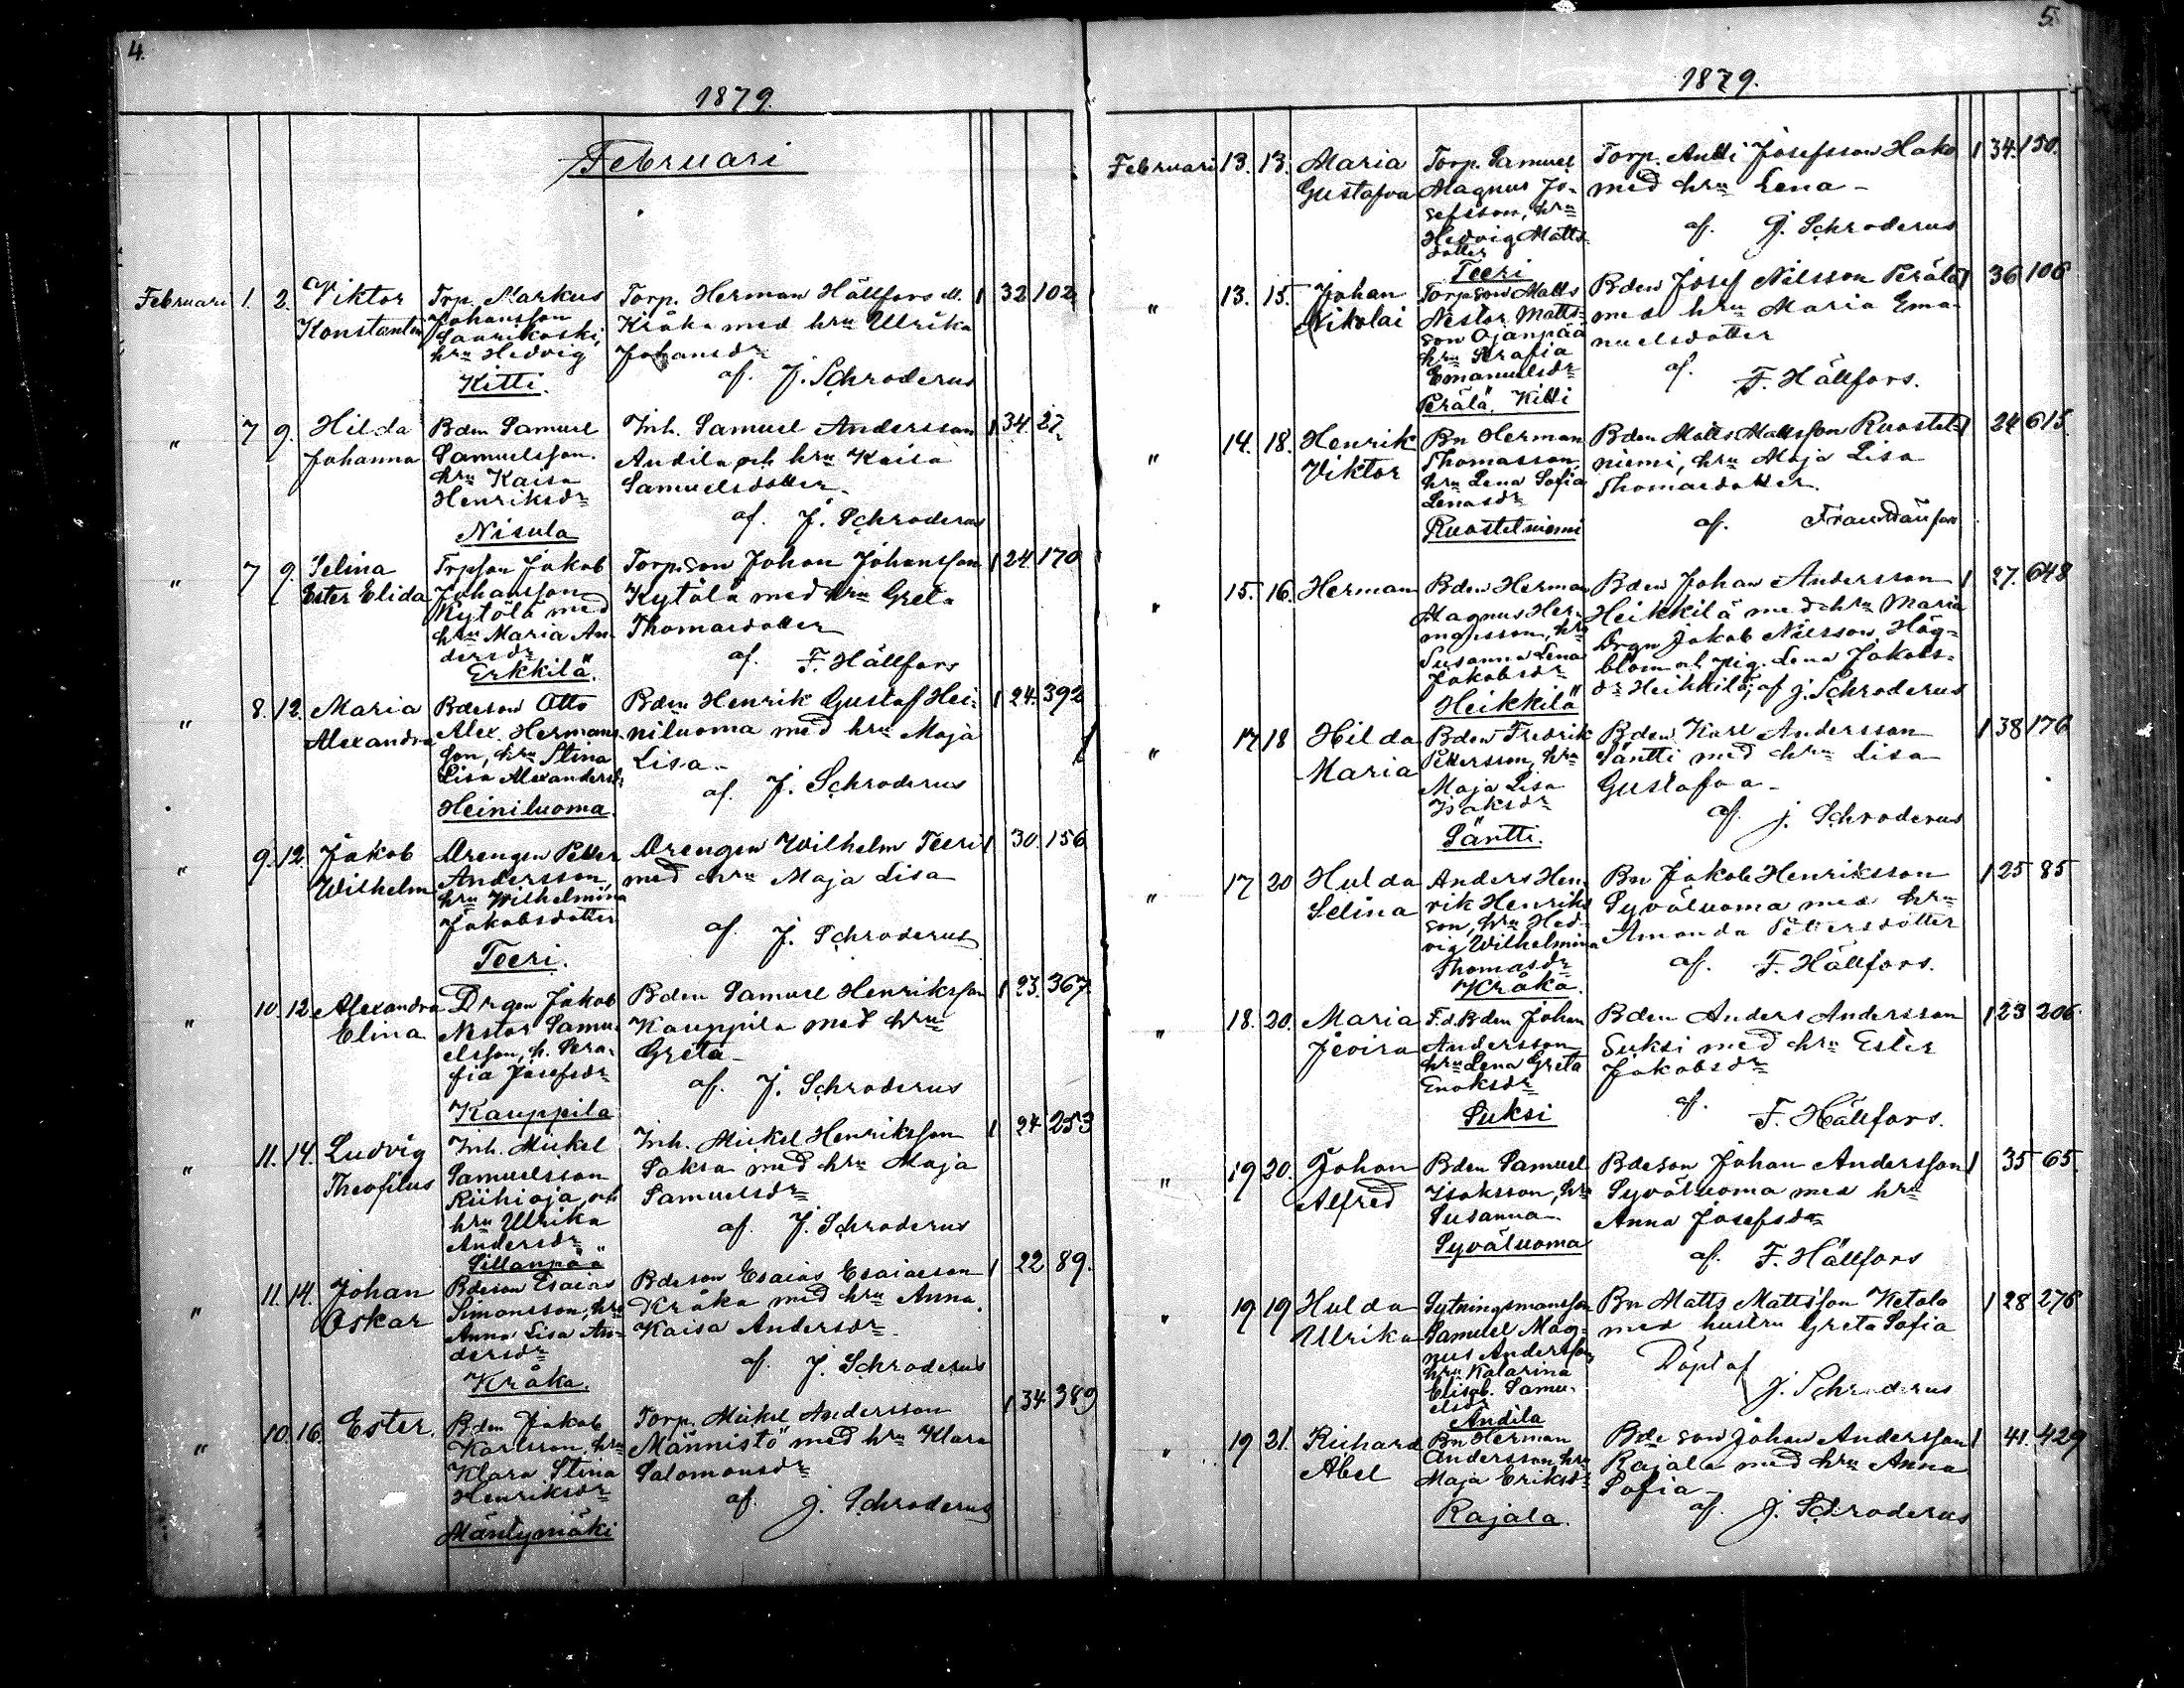 4.
1879.
Februari
Februari 1. 2. Viktor Konstantin
Trp. Markus
Johansson
Saarikoski,
hru Hedvig
Kitti.
Torp. Herman Hällfors
Kråka med hru Ulrika
Johansdr
af. J. Schroderus
1 32 102
" 7 9. Hilda Johanna
Bden Samuel
Samuelsson.
hru Kaisa
Henriksdr
Nisula
Inh. Samuel Andersson
Andila och hru Kaisa
Samuelsdotter.
af. J. Schroderus
1 34. 27
" 7 9. Selina Ester Elida
Trpson Jakob
Johansson
Kytölä med
hru Maria An-
dersdr
Erkkilä.
Torpson Johan Johansson
Kytölä med hru Greta
Thomasdotter
af. F. Hällfors
1 24 170
" 8. 12. Maria Alexandra
Bdeson Otto
Alex. Hermans-
son, hru Stina
Lisa Alexandersdr
Heiniluoma.
Bden Henrik Gustaf Hei-
niluoma med hru Maja
Lisa.
af. J. Schroderus
1 24. 392
" 9. 12. Jakob Wilhelm
Drengen Petter
Andersson,
hru Wilhelmina
Jakobsdotter
Teeri.
Drengen Wilhelm Teeri
med hru Maja Lisa
af. J. Schroderus
1 30. 156
" 10. 12. Alexandra Elina
Drgen Jakob
Nestor Samu-
elsson, h. Sera-
fia Josefsdr
Kauppila
Bden Samuel Henriksson
Kauppila med hru
Greta
af. J. Schroderus
1 23. 367.
" 11. 14. Ludvig Theofilus
Inh. Mickel
Samuelsson
Riihioja, och
hru Ulrika
Andersdr
Sillanpää
Inh. Mickel Henriksson
Saksa med hru Maja
Samuelsdr
af. J. Schroderus
1 24 253
" 11. 14. Johan Oskar
Bdeson Esaias
Simonsson, hru
Anna Lisa An-
dersdr
Kråka.
Bdeson Esaias Esaiasson
Kråka med hru Anna
Kaisa Andersdr.
af. J. Schroderus
1 22 89.
" 10. 16. Ester.
Bden Jakob
Karlsson, hru
Klara Stina
Henriksdr
Mäntymäki
Torp. Mickel Andersson
Männistö med hru Klara
Salomonsdr
af. J. Schroderus
1 34 389
5.
1879.
Februari 13. 13. Maria Gustafva
Torp. Samuel
Magnus Jo-
sefsson, hru
Hedvig Matts-
dotter
Teeri
Torp. Antti Josefsson Hako
med hru Lena
af. J. Schroderus
1 34. 150.
" 13. 15. Johan Nikolai
Torpson Matts
Nestor Matts-
son Ojanpää
hru Serafia
Emanuelsdr
Perälä. Kitti
Bden Josef Nilsson Perälä
med hru Maria Ema-
nuelsdotter
af. F. Hällfors.
1 36 106
" 14. 18. Henrik Viktor
Bn Herman
Thomasson,
hru Lena Sofia
Lenasdr
Ruostetniemi
Bden Matts Mattsson Ruostet-
niemi, hru Maja Lisa
Thomasdotter.
af.
1 24 615.
" 15. 16. Herman
Bden Herman
Magnus Her-
mansson, hru
Susanna Lena
Jakobsdr
Heikkilä
Bden Johan Andersson
Heikkilä med hru Maria
Drgn Jakob Nilsson Hög-
blom och pig. Lena Jakobs-
dr Heikkilä, af J. Schroderus
1 27. 648
" 17 18 Hilda Maria
Bden Fredrik
Pettersson, hru
Maja Lisa
Isaksdr
Säntti.
Bden Karl Andersson
Säntti med hru Lisa
Gustafva
af. J. Schroderus
1 38 176
" 17 20 Hulda Selina
Anders Hen-
rik Henriks-
son, hru Hed-
vig Wilhelmina
Thomasdr
Kråka.
Bn Jakob Henriksson
Syväluoma med hru
Amanda Pettersdotter
af. F. Hällfors.
1 25 85
" 18. 20. Maria Jevira
F.d. Bden Johan
Andersson
hru Lena Greta
Enoksdr
Suksi
Bden Anders Andersson
Suksi med hru Ester
Jakobsdr
af. F. Hällfors.
1 23 206.
" 19 20. Johan Alfred
Bden Samuel
Isaksson, hru
Susanna
Syväluoma
Bdeson Johan Andersson
Syväluoma med hru
Anna Josefsdr
af. F. Hällfors
1 35 65.
" 19 19 Hulda Ulrika
Sytningsmansson
Samuel Mag-
nus Andersson,
hru Katarina
Elisab. Samu-
elsdr
Andila
Bn Matts Mattsson Ketola
med hustru Greta Sofia
Döpt af
J. Schroderus
1 28 276
" 19 21. Richard Abel
Bn Herman
Andersson, hru
Maja Eriksdr
Rajala.
Bde son Johan Andersson
Rajala med hru Anna
Sofia
af. J. Schroderus
1 41. 429